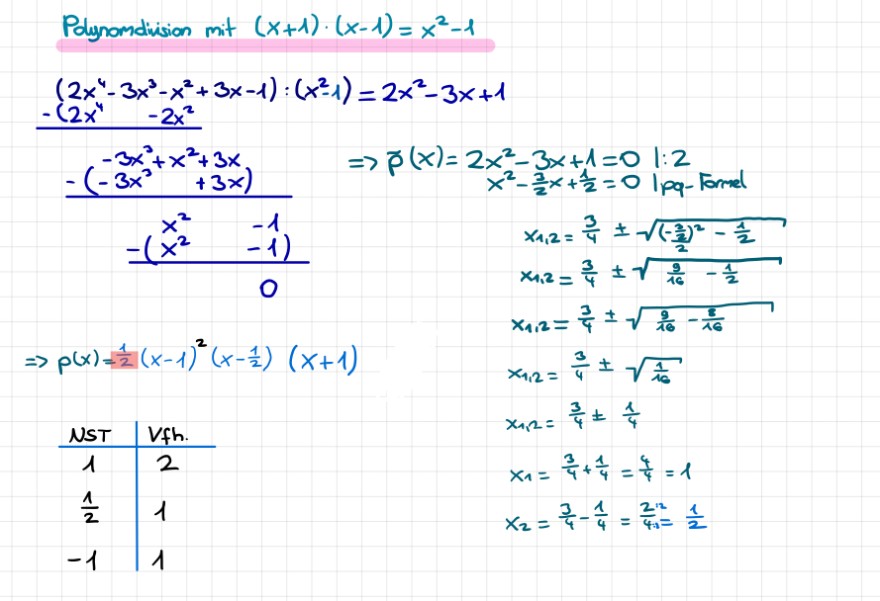 Polynomdivision mit (x+1)·(x-1) = x²-1
(2x⁴-3x³-x²+3x-1) : (x²-1) = 2x²-3x+1
-(2x⁴ -2x²
-3x³+x²+3x
-(-3x³ +3x)
x² -1
-(x² -1)
0
=> p̃(x) = 2x²-3x+1=0 |:2
x²-3/2x+1/2=0 |pq-Formel
x1,2 = 3/4 ± √((-3/2/2)² - 1/2)
x1,2 = 3/4 ± √(9/16 - 1/2)
x1,2 = 3/4 ± √(9/16 - 8/16)
x1,2 = 3/4 ± √(1/16)
x1,2 = 3/4 ± 1/4
x1 = 3/4 + 1/4 = 4/4 = 1
x2 = 3/4 - 1/4 = 2/4 = 1/2
=> p(x) = 1/2 (x-1)² (x-1/2) (x+1)
NST Vfh.
1 2
1/2 1
-1 1